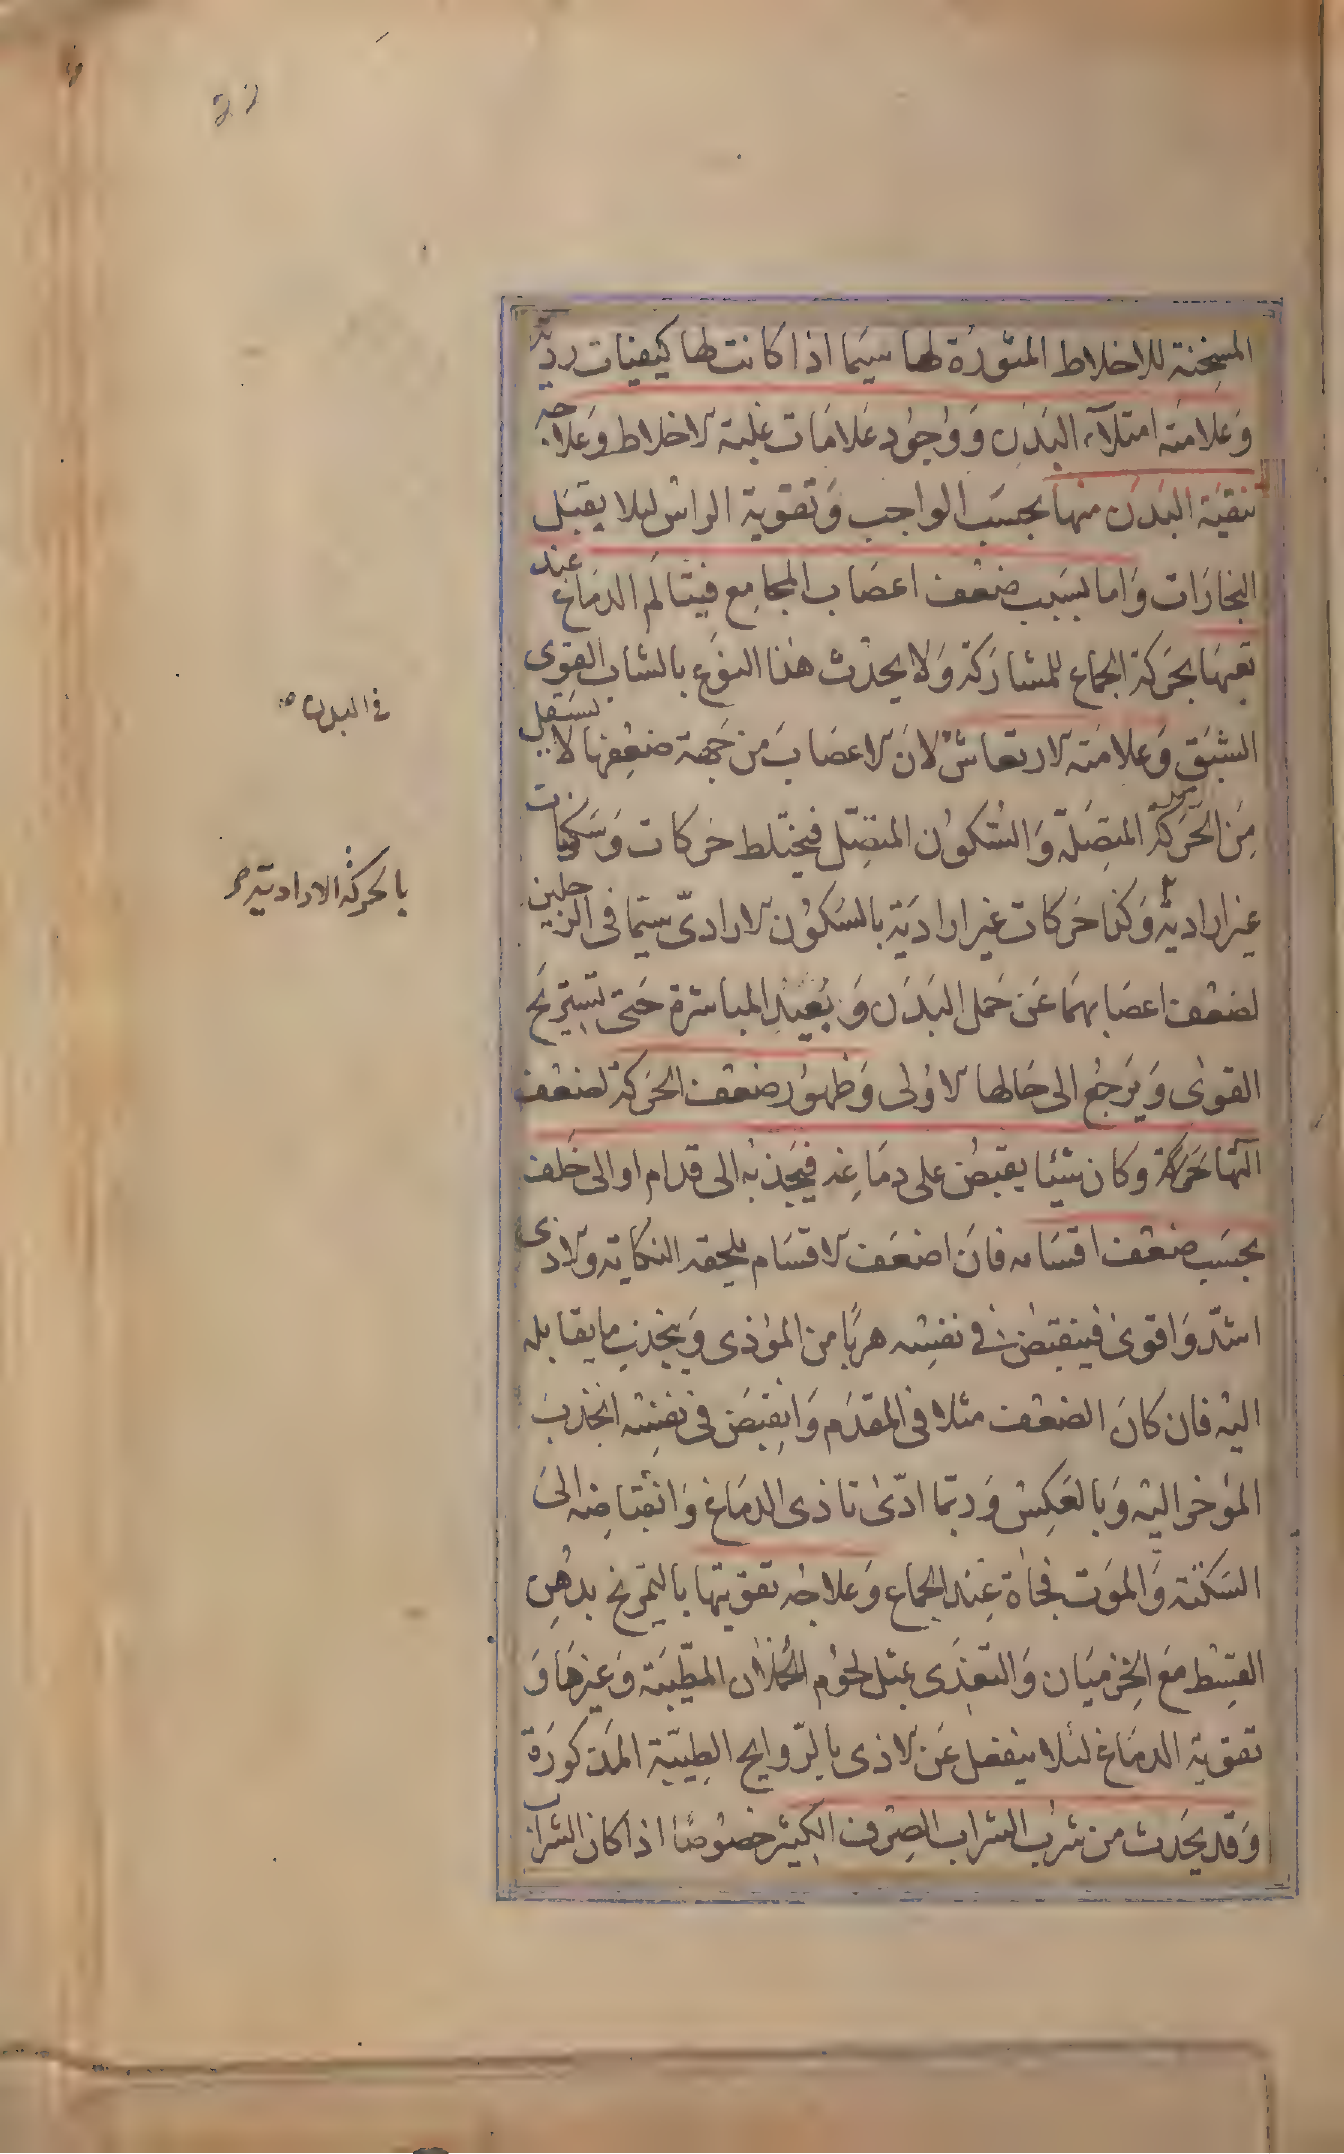 المسخنة للاخلاط المثورة لها سيما اذا كانت لها كيفيات رديّة
وَعَلامَته امتلآء البَدَن وَوُجوُد عَلامَات غلبة الاخلاط وَعَلاجه
تنقيَة البَدَن منها بحسَب الواجب وَتقوية الراس ليلا يقبَل
البخارَات وَاما بسَبب ضعْف اعصَاب المجامِع فيتالم الدمَاغ عند
تعبهَا بحَركة الجماع للمشاركة وَلا يحدث هٰذا النوَع بالشاب القوى
الشبَق وَعلامَته الارتعاش لانَ الاعصابَ من جَهة ضعفِها لا تستقل
مِنَ الحَركةِ المتصَلة وَالسُكوُن المتصِل فيختلط حَركات وَسَكونات
غير اراديّة وَكذا حَركات غير ارادَية بالسَكوُن الارادىّ سيّما فى الرجلين
لضعْف اعصَابهمَا عَن حَمل البَدَن وَبُعَيد المباشرة حَتى تستِريحَ
القوىٰ وَيرَجعُ الى حَالها الاوُلى وَظهوُر ضعْف الحَركة لضعْف
آلتها حَركة وكان شيئا يقبضُ على دمَاغِه فيَجَذبُه الى قدام او الى خَلف
بحسَب ضعْف اقسَامه فانَ اضعَف الاقسَام يلحقه النكاية والاذى
اشدّ وَاقوىٰ فينقبضُ فى نفسِه هربًا من المؤذى وَيجذب ما يقابله
اليْه فان كانَ الضعْف مثلا فى المقدّم وَانِقبَضَ فى نفسِه انجذبَ
المؤخر اليْه وَبالعَكسِ وَربّما ادّىٰ تاذى الدمَاغ وَانقباضِه الىَ
السَكتة وَالموَت فجاة عِند الجماع وَعلاجُه تقويتها بالتمريخ بدهْنِ
القسِط مَع الخِزميَان وَالتغذىَ بمثل لحوُم الحملان المطيّبَة وَغيرهَا وَ
تقوية الدمَاغ لئلا ينفعل عَن الاذى بالرّوايح الطيبّة المذكورَة
وَقد يحَدث من شربْ الشراب الصِرْف الكثير خصوُصًا اذا كان الشراب
فى البدن
بالحركة الارادية